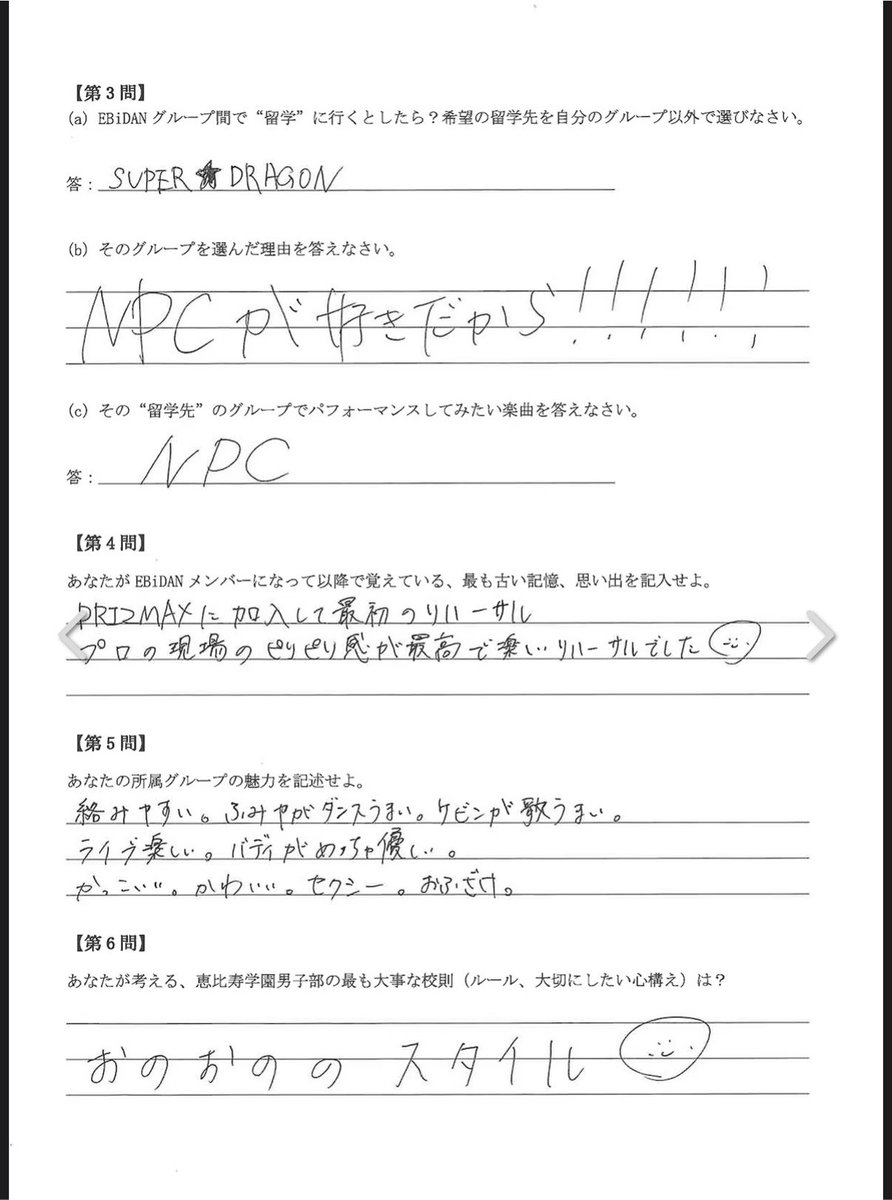 【第3問】
(a) EBiDANグループ間で“留学”に行くとしたら？希望の留学先を自分のグループ以外で選びなさい。
答：SUPER★DRAGON
(b) そのグループを選んだ理由を答えなさい。
NPCが好きだから!!!!!!
(c) その“留学先”のグループでパフォーマンスしてみたい楽曲を答えなさい。
答：NPC
【第4問】
あなたがEBiDANメンバーになって以降で覚えている、最も古い記憶、思い出を記入せよ。
PRIZMAXに加入して最初のリハーサル
プロの現場のピリピリ感が最高で楽しいリハーサルでした
【第5問】
あなたの所属グループの魅力を記述せよ。
絡みやすい。ふみやがダンスうまい。ケビンが歌うまい。
ライブ楽しい。バディがめっちゃ優しい。
かっこいい。かわいい。セクシー。おふざけ。
【第6問】
あなたが考える、恵比寿学園男子部の最も大事な校則（ルール、大切にしたい心構え）は？
おのおのの スタイル